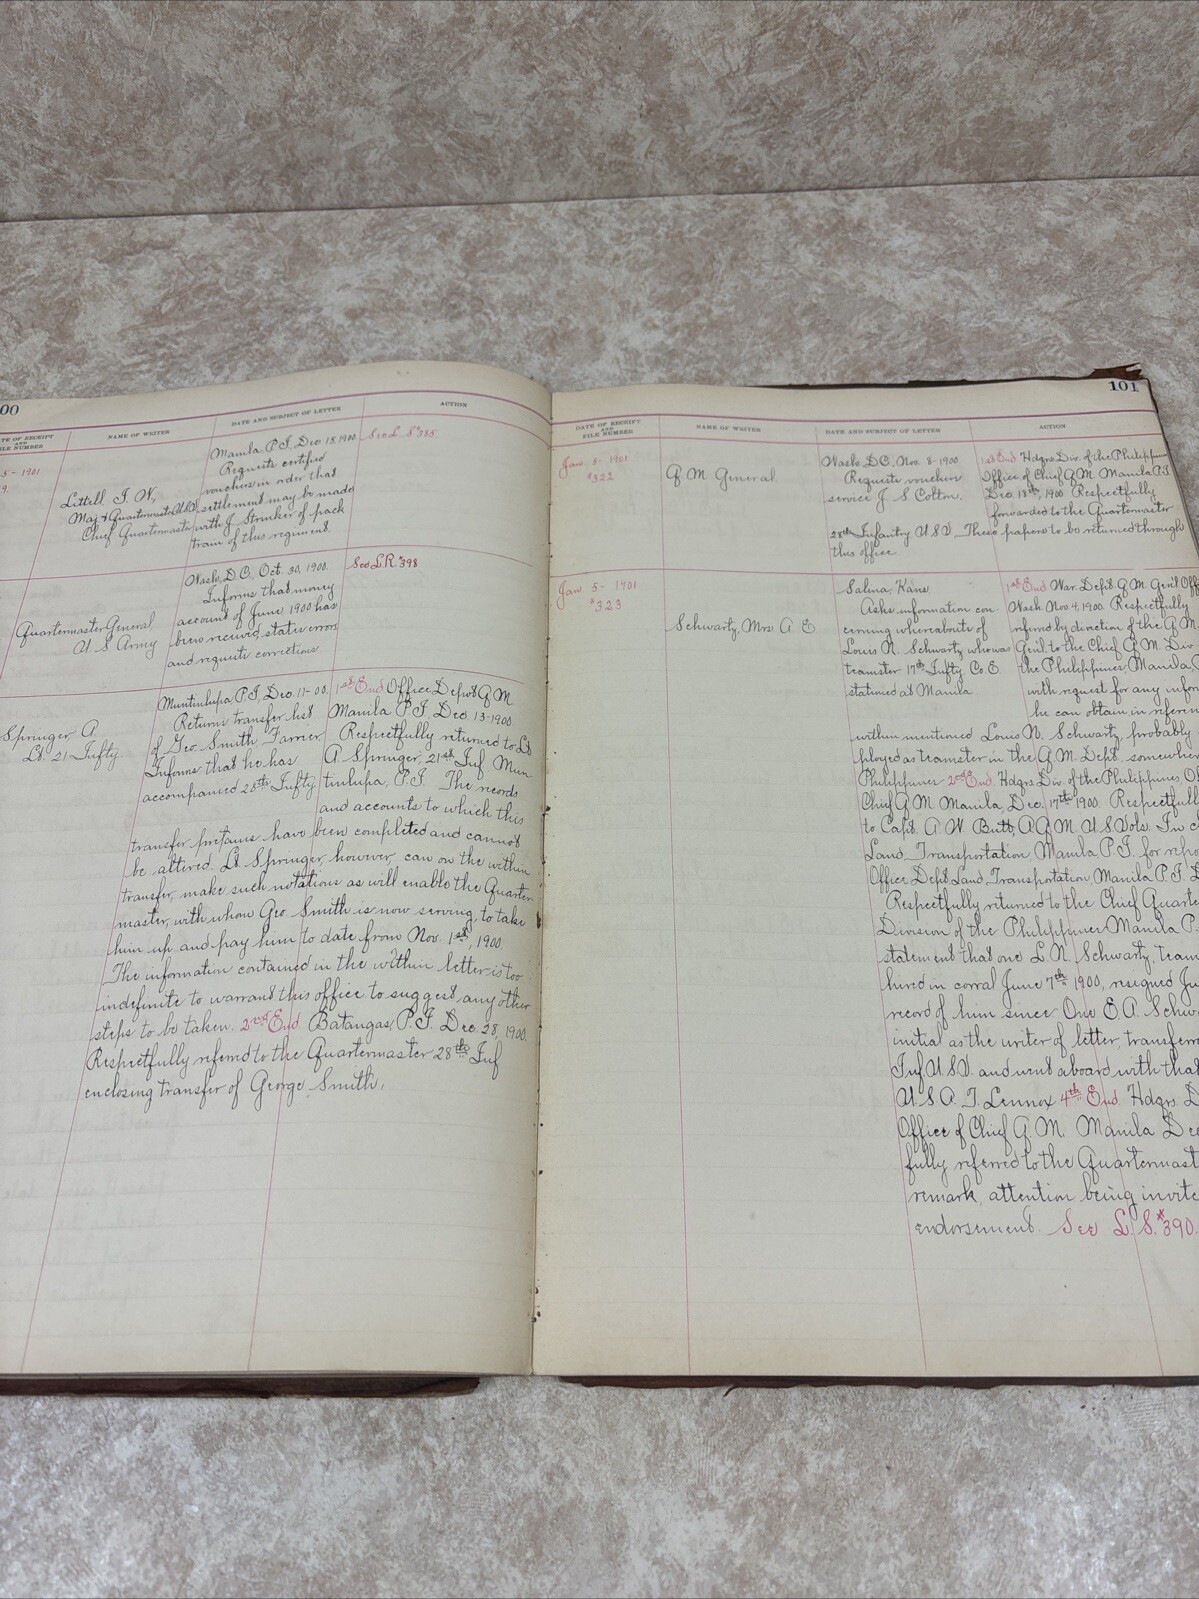 00
DATE OF RECEIPT
AND
FILE NUMBER
NAME OF WRITER
DATE AND SUBJECT OF LETTER
ACTION
5-1901
9.
Littell I. W,
Maj & Quartermaster U.S.V.
Chief Quartermaster
Manila P.I. Dec 18, 1900.
Requests certified
vouchers in order that
settlement may be made
with J. Strinker of pack
train of this regiment.
See L. S. #385.
Quartermaster General
U S Army
Wash, D.C, Oct. 30, 1900.
Informs that money
account of June, 1900 has
been received, states errors
and requests corrections.
See L.R. #398
Springer A
Lt. 21 Infty
Muntinlupa, P.I., Dec. 11-00.
Returns transfer list
of Geo. Smith, Farrier
Informs that he has
accompanied 28th Infty
1st End Office Depot Q M.
Manila P.I. Dec 13-1900.
Respectfully returned to Lt
A. Springer, 21st Inf. Mun
tinlupa, P.I. The records
and accounts to which this
transfer pertains have been completed and cannot
be altered. Lt Springer, however, can on the within
transfer, make such notations as will enable the Quarter-
master, with whom Geo. Smith is now serving, to take
him up and pay him to date from Nov. 1st, 1900.
The information contained in the within letter is too
indefinite to warrant this office to suggest any other
steps to be taken. 2nd End. Batangas, P.I. Dec. 28, 1900.
Respectfully referred to the Quartermaster 28th Inf
enclosing transfer of George Smith.
101
DATE OF RECEIPT
AND
FILE NUMBER
NAME OF WRITER
DATE AND SUBJECT OF LETTER
ACTION
Jan. 5-1901
#322
Q. M. General
Wash, D.C., Nov. 8-1900
Requests vouchers
service J S Colton.
28th Infantry U.S.V. These papers to be returned through
this office
1st End Hdqrs Div. of the Philippines
Office of Chief Q.M. Manila P.I
Dec 18th, 1900 Respectfully
forwarded to the Quartermaster
Jan 5-1901
#323
Schwartz, Mrs A E
Salina, Kans.
Asks information con
cerning whereabouts of
Louis N. Schwartz who was
teamster 17th Infty Co E
stationed at Manila
1st End War. Dept Q M. Genl Off
Wash. Nov 4, 1900. Respectfully
referred by direction of the Q M
Genl to the Chief Q.M. Div
the Philippines, Manila,
with request for any infor
he can obtain in referen
within mentioned Louis N. Schwartz, probably
ployed as teamster in the Q.M. Dept. somewher
Philippines 2nd End. Hdqrs Div. of the Philippines O
Chief Q M Manila Dec. 17th 1900. Respectfully
to Capt. A W Butt, A Q M. U S Vols. In c
Land Transportation, Manila P.I. for repo
Office Dept Land Transportation, Manila P I D
Respectfully returned to the Chief Quarte
Division of the Philippines Manila P.
statement that one L. N. Schwartz, team
hired in corral June 7th 1900, resigned Ju
record of him since. One E A. Schw
initial as the writer of letter, transferr
Inf U.S.V. and went aboard with that
U.S.A.T. Lennox 4th End Hdqrs D
Office of Chief Q. M. Manila De
fully referred to the Quartermast
remark, attention being invite
endorsement. See L. S. #390.